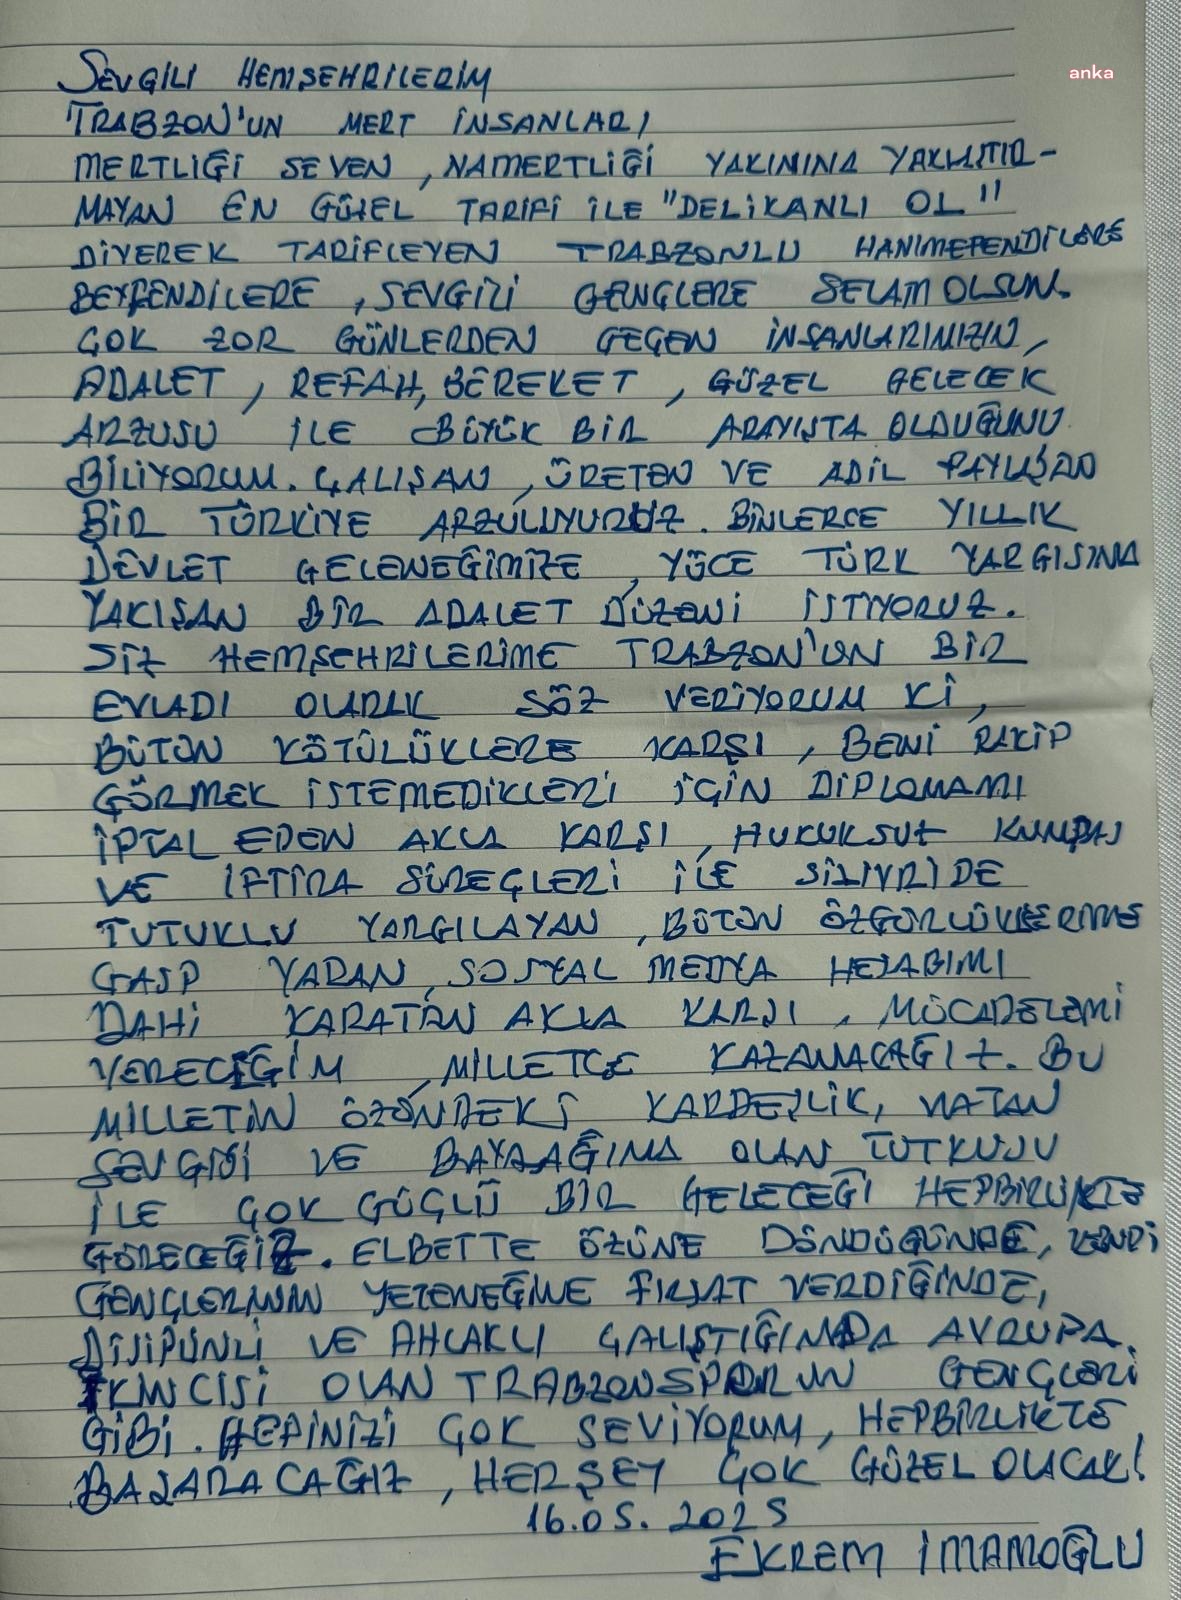 anka
SEVGİLİ HEMŞEHRİLERİM
TRABZON'UN MERT İNSANLARI
MERTLİĞİ SEVEN, NAMERTLİĞİ YAKININA YAKLAŞTIR-
MAYAN EN GÜZEL TARİFİ İLE "DELİKANLI OL"
DİYEREK TARİFLEYEN TRABZONLU HANIMEFENDİLERE
BEYFENDİLERE, SEVGİLİ GENÇLERE SELAM OLSUN.
ÇOK ZOR GÜNLERDEN GEÇEN İNSANLARIMIZIN,
ADALET, REFAH, BEREKET, GÜZEL GELECEK
ARZUSU İLE BÜYÜK BİR ARAYIŞTA OLDUĞUNU
BİLİYORUM. ÇALIŞAN, ÜRETEN VE ADİL PAYLAŞAN
BİR TÜRKİYE ARZULUYORUZ. BİNLERCE YILLIK
DEVLET GELENEĞİMİZE, YÜCE TÜRK YARGISINA
YAKIŞAN BİR ADALET DÜZENİ İSTİYORUZ.
SİZ HEMŞEHRİLERİME TRABZON'UN BİR
EVLADI OLARAK SÖZ VERİYORUM Kİ,
BÜTÜN KÖTÜLÜKLERE KARŞI, BENİ RAKİP
GÖRMEK İSTEMEDİKLERİ İÇİN DİPLOMAMI
İPTAL EDEN AKLA KARŞI, HUKUKSUZ KUMPAS
VE İFTİRA SÜREÇLERİ İLE SİLİVRİDE
TUTUKLU YARGILAYAN, BÜTÜN ÖZGÜRLÜKLERİME
GASP YAPAN, SOSYAL MEDYA HESABIMI
DAHİ KARATAN AKLA KARŞI, MÜCADELEMİ
VERECEĞİM, MİLLETÇE KAZANACAĞIZ. BU
MİLLETİN ÖZÜNDEKİ KARDEŞLİK, VATAN
SEVGİSİ VE BAYRAĞINA OLAN TUTKUSU
İLE ÇOK GÜÇLÜ BİR GELECEĞİ HEPBİRLİKTE
GÖRECEĞİZ. ELBETTE ÖZÜNE DÖNDÜĞÜNDE, KENDİ
GENÇLERİNİN YETENEĞİNE FIRSAT VERDİĞİNDE,
DİSİPLİNLİ VE AHLAKLI ÇALIŞTIĞINDA AVRUPA
İKİNCİSİ OLAN TRABZONSPORUN GENÇLERİ
GİBİ. HEPİNİZİ ÇOK SEVİYORUM, HEPBİRLİKTE
BAŞARACAĞIZ, HERŞEY ÇOK GÜZEL OLACAK!
16.05.2025
EKREM İMAMOĞLU